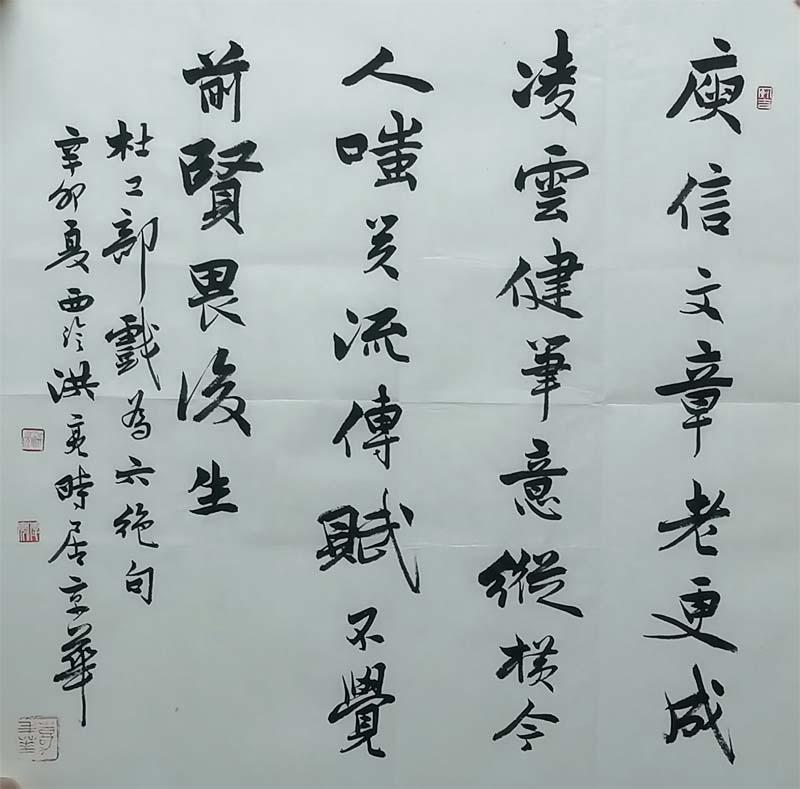 庾信文章老更成
凌雲健筆意縱橫今
人嗤笑流傳賦不覺
前賢畏後生
杜工部戲為六絶句
辛卯夏西泠洪亮時居京華